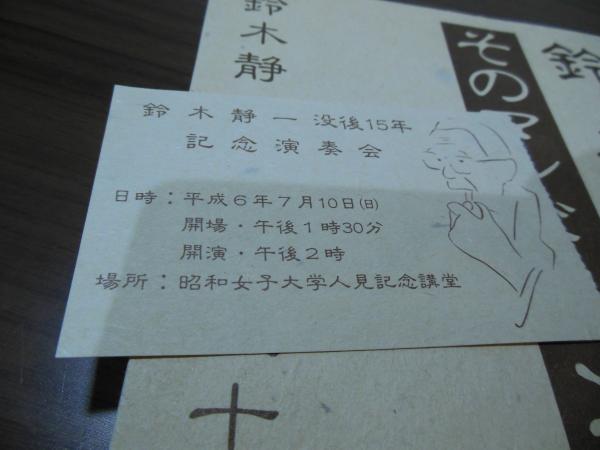 鈴木静
そのマンド
鈴
鈴木静一没後15年
記念演奏会
日時：平成6年7月10日(日)
開場・午後1時30分
開演・午後2時
場所：昭和女子大学人見記念講堂
十